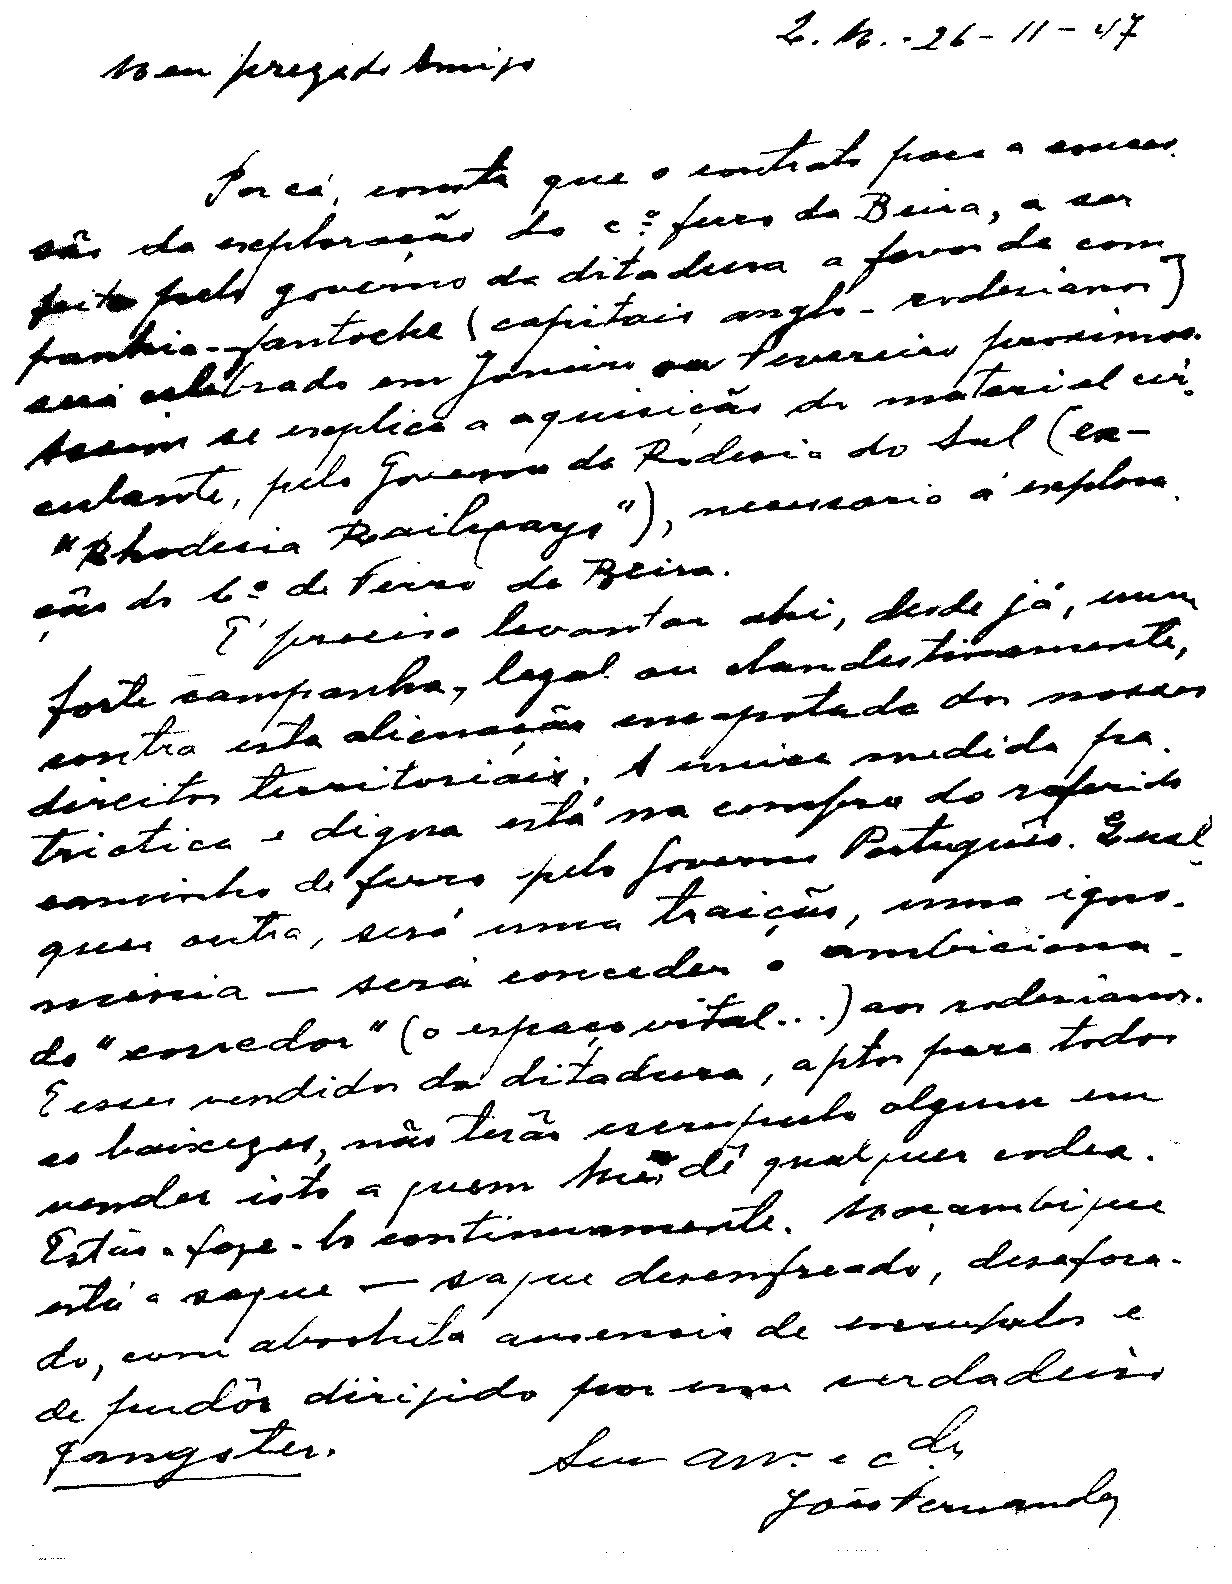 L. M. - 26 - 11 - 47
Meu prezado Amigo
Por cá, consta que o contrato para a conces-
são da exploração do c.º ferro da Beira, a ser
feito pelo govêrno da ditadura a favor de com
panhia-fantoche (capitais anglo-rodesianos)
será celebrado em Janeiro ou Fevereiro proximos.
Assim se explica a aquisição de material cir-
culante, pelo Governo da Rodesia do Sul (ex-
"Rhodesia Railways"), necessario á explora-
ção do C.º de Ferro da Beira.
E' preciso levantar ahi, desde já, uma
forte campanha, legal ou clandestinamente,
contra esta alienação encapotada dos nossos
direitos territoriais. A unica medida pa-
triotica e digna está na compra do referido
caminho de ferro pelo Governo Português. Qual-
quer outra, será uma traição, uma igno-
minia — será conceder o ambiciona-
do "corredor" (o espaço vital...) aos rodesianos.
E esses vendidos da ditadura, aptos para todas
as baixezas, não terão escrupulo algum em
vender isto a quem lhes dê qualquer codea.
Estão a faze-lo continuamente. Moçambique
está a saque — saque desenfreado, desafora-
do, com absoluta ausencia de escrupulos e
de pudôr dirijido por um verdadeiro
gangster.
Seu am.º e c.do
João Fernandes